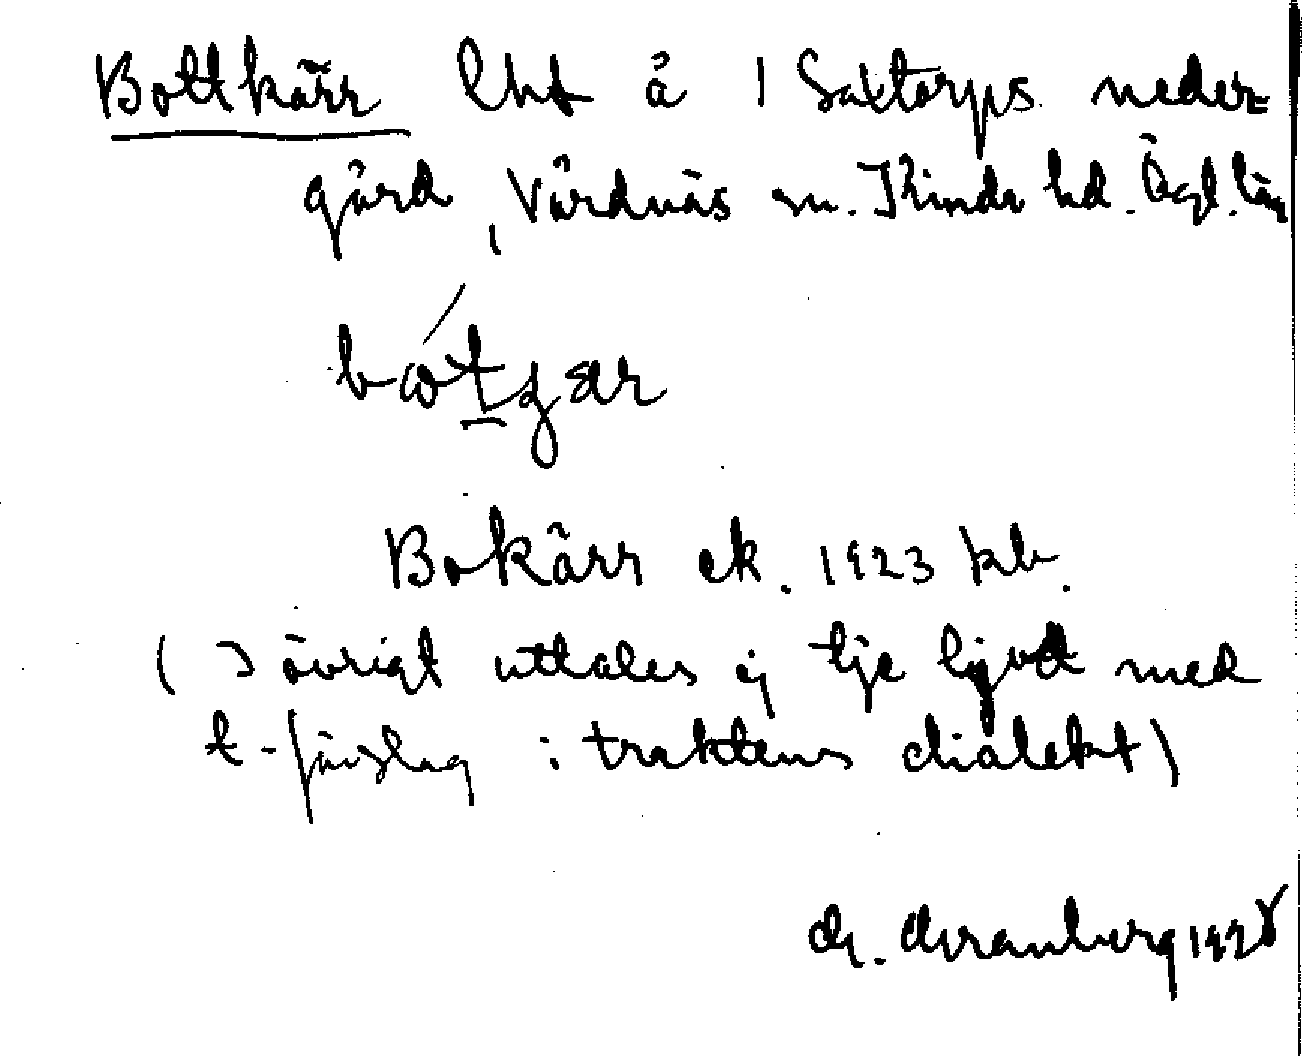 Bottkärr lht å 1 Sattorps neder=
gård, Vårdnäs sn. Kinda hd. Ögl. län
Bokärr ek. 1923 kb.
( I övrigt uttales ej tje ljud med
t-förslag i traktens dialekt)
1928